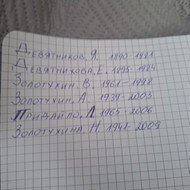 Девятников. Я. 1890-1921
Девятникова. Е. 1895-1924
Золотухин. В. 1961-1998
Золотухин. А. 1939-2003
Придайло. Л 1965-2006
Золотухина. Н 1941-2009